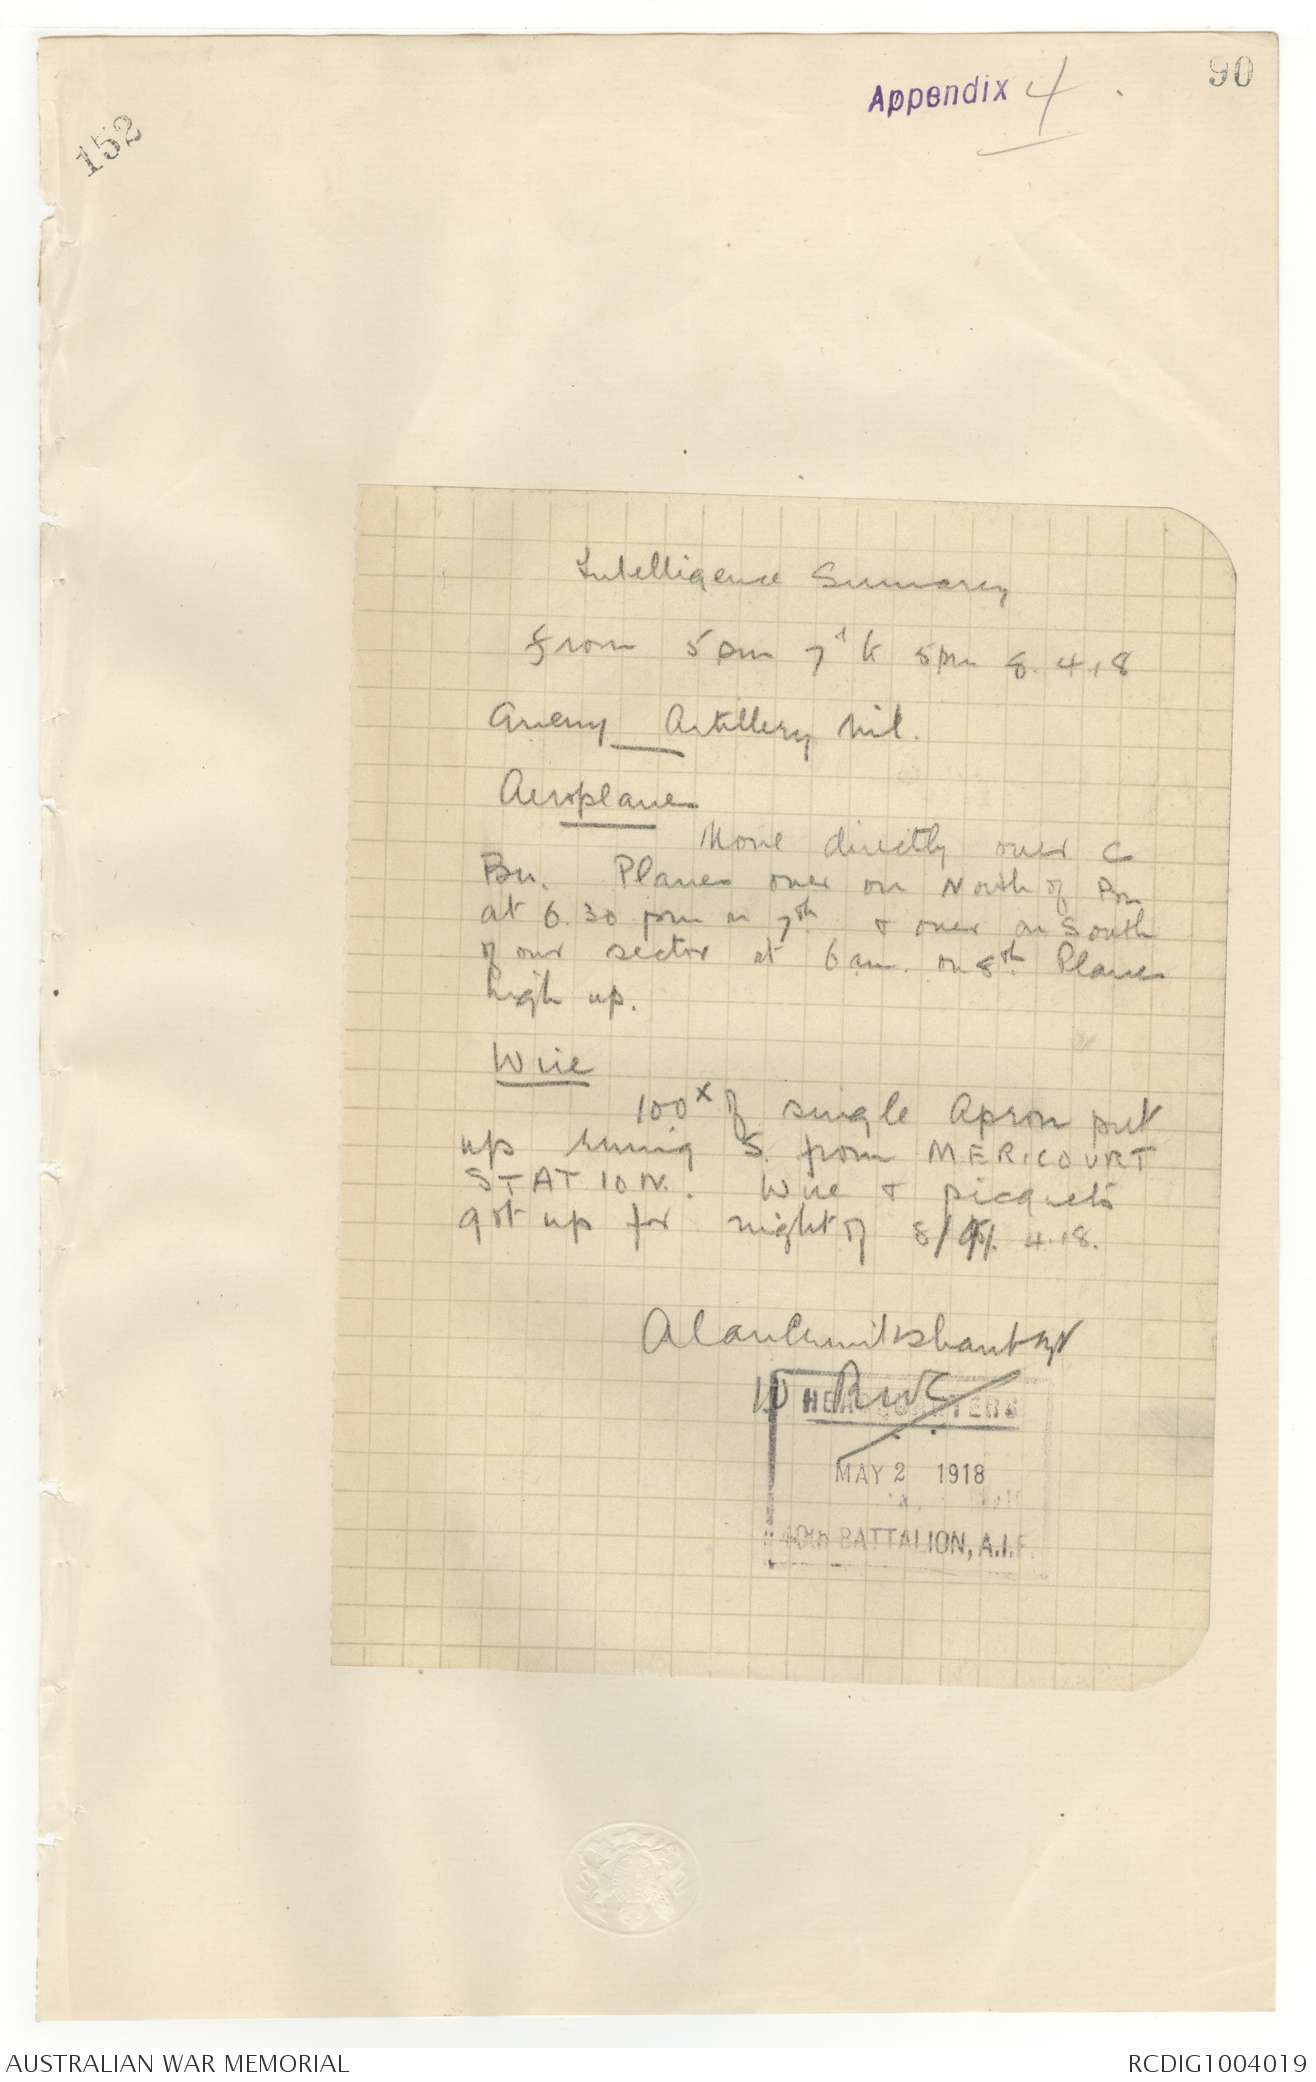 90
Appendix 4.
152
Intelligence Summary
from 5 pm 7th to 5pm 8.4.18
Enemy Artillery Nil.
Aeroplanes
None directly over C
Bn. Planes over on North of Bn
at 6.30 pm on 7th & over on South
of our sector at 6 am. on 8th. Planes
high up.
Wire
100x of single Apron put
up runing S. from MERICOURT
STATION. Wire & picquets
got up for night of 8/9. 4.18.
HEADQUARTERS
MAY 2 1918
40th BATTALION, A.I.F.
AUSTRALIAN WAR MEMORIAL
RCDIG1004019